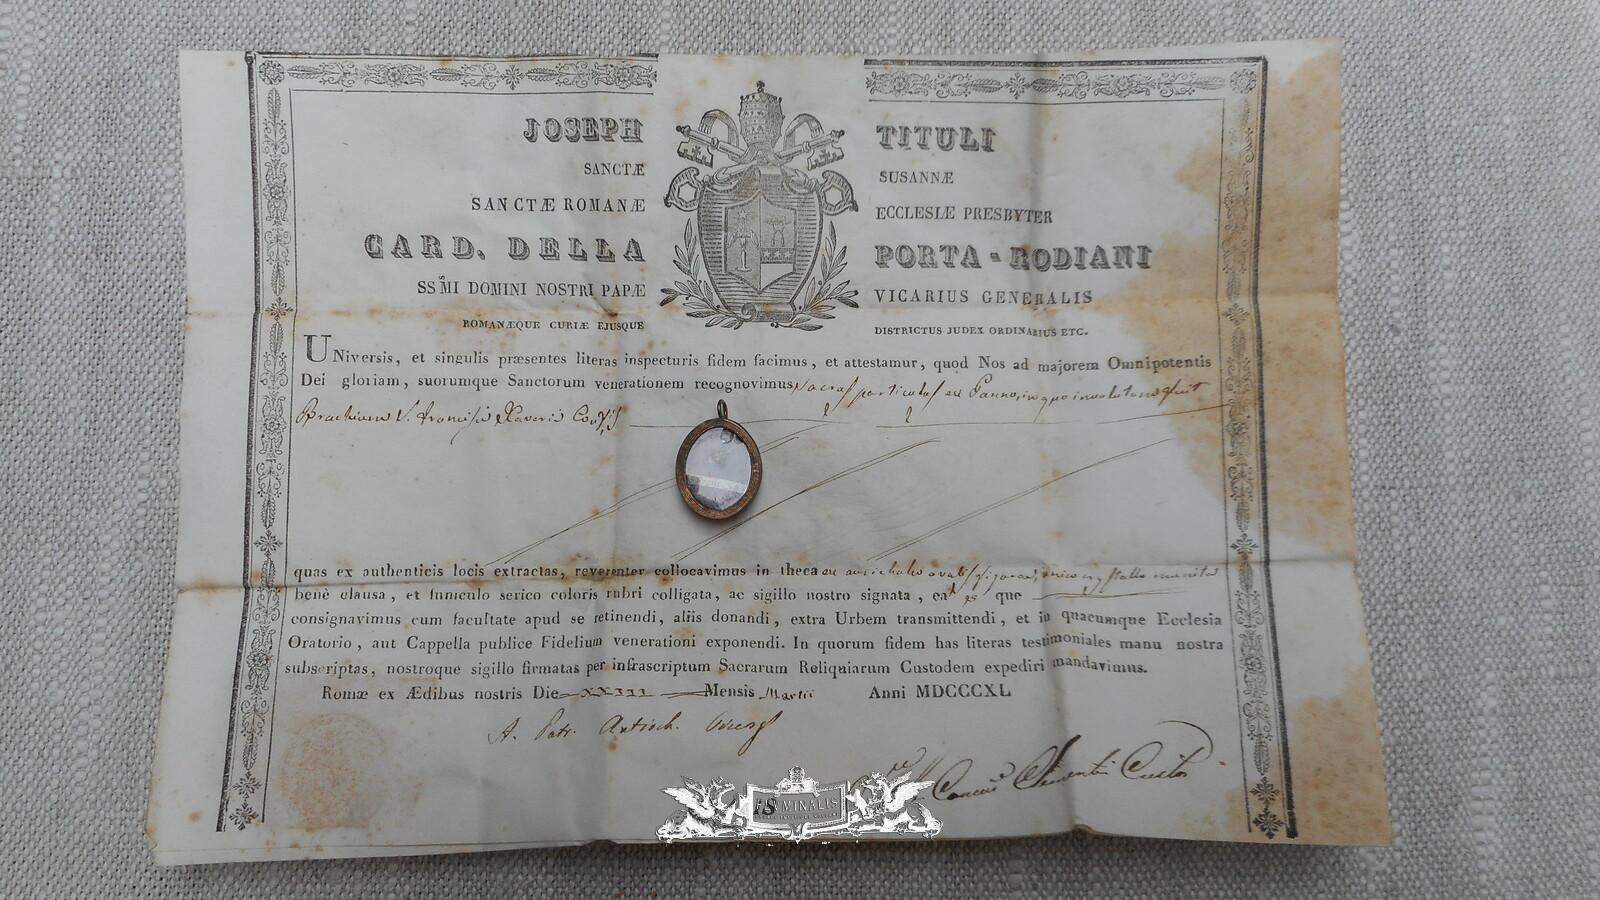 JOSEPH TITULI
SANCTÆ SUSANNÆ
SANCTÆ ROMANÆ ECCLESIÆ PRESBYTER
CARD. DELLA PORTA - RODIANI
SSM̃I DOMINI NOSTRI PAPÆ VICARIUS GENERALIS
ROMANÆQUE CURIÆ EJUSQUE DISTRICTUS JUDEX ORDINARIUS ETC.
UNiversis, et singulis præsentes literas inspecturis fidem facimus, et attestamur, quod Nos ad majorem Omnipotentis
Dei gloriam, suorumque Sanctorum venerationem recognovimus sacras particulas ex Panno, in quo involutum fuit
Brachium S. Francisci Xaverii Conf.
quas ex authenticis locis extractas, reverenter collocavimus in theca ex aurichalco ovalis figurae, unico crystallo munita
benè clausa, et funiculo serico coloris rubri colligata, ac sigillo nostro signata, easque
consignavimus cum facultate apud se retinendi, aliis donandi, extra Urbem transmittendi, et in quacumque Ecclesia
Oratorio, aut Cappella publice Fidelium venerationi exponendi. In quorum fidem has literas testimoniales manu nostra
subscriptas, nostroque sigillo firmatas per infrascriptum Sacrarum Reliquiarum Custodem expediri mandavimus.
Romæ ex Ædibus nostris Die XXIII Mensis Martii Anni MDCCCXL
A. Patr. Antioch. Vicesg
Custos
ISEMINALIS